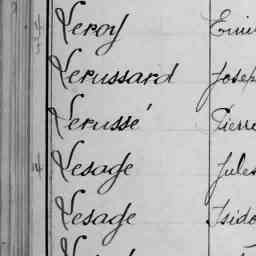 Leroy Emi
Lerussard Josep
Lerussé Pierre
Lesage Jules
Lesage Isido